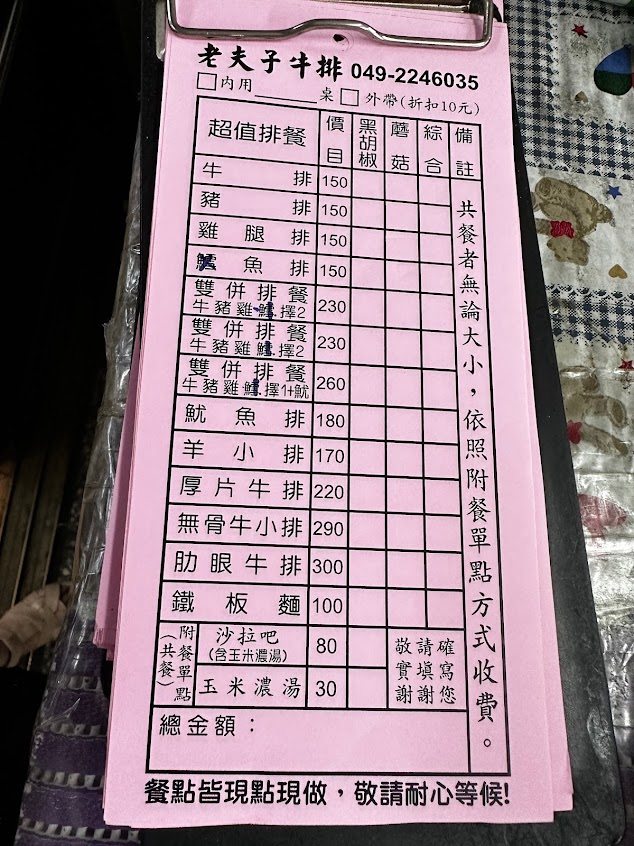 老夫子牛排 049-2246035
□內用______桌 □外帶(折扣10元)
超值排餐 價目 黑胡椒 蘑菇 綜合 備註
牛排 150
豬排 150
雞腿排 150
魚排 150
雙併排餐 230
牛豬雞.擇2
雙併排餐 230
牛豬雞.擇2
雙併排餐 260
牛豬雞.擇1+魷
魷魚排 180
羊小排 170
厚片牛排 220
無骨牛小排 290
肋眼牛排 300
鐵板麵 100
附餐單點(共餐)
沙拉吧 80
(含玉米濃湯)
玉米濃湯 30
確實填寫
敬請謝謝您
共餐者無論大小，依照附餐單點方式收費。
總金額：
餐點皆現點現做，敬請耐心等候!